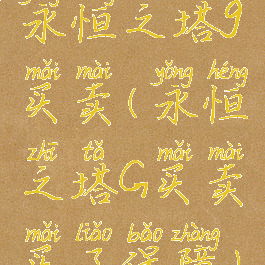 永恒之塔9
mǎi mài yǒng héng
买卖(永恒
zhī tǎ mǎi mài
之塔G买卖
mǎi liǎo bǎo zhàng